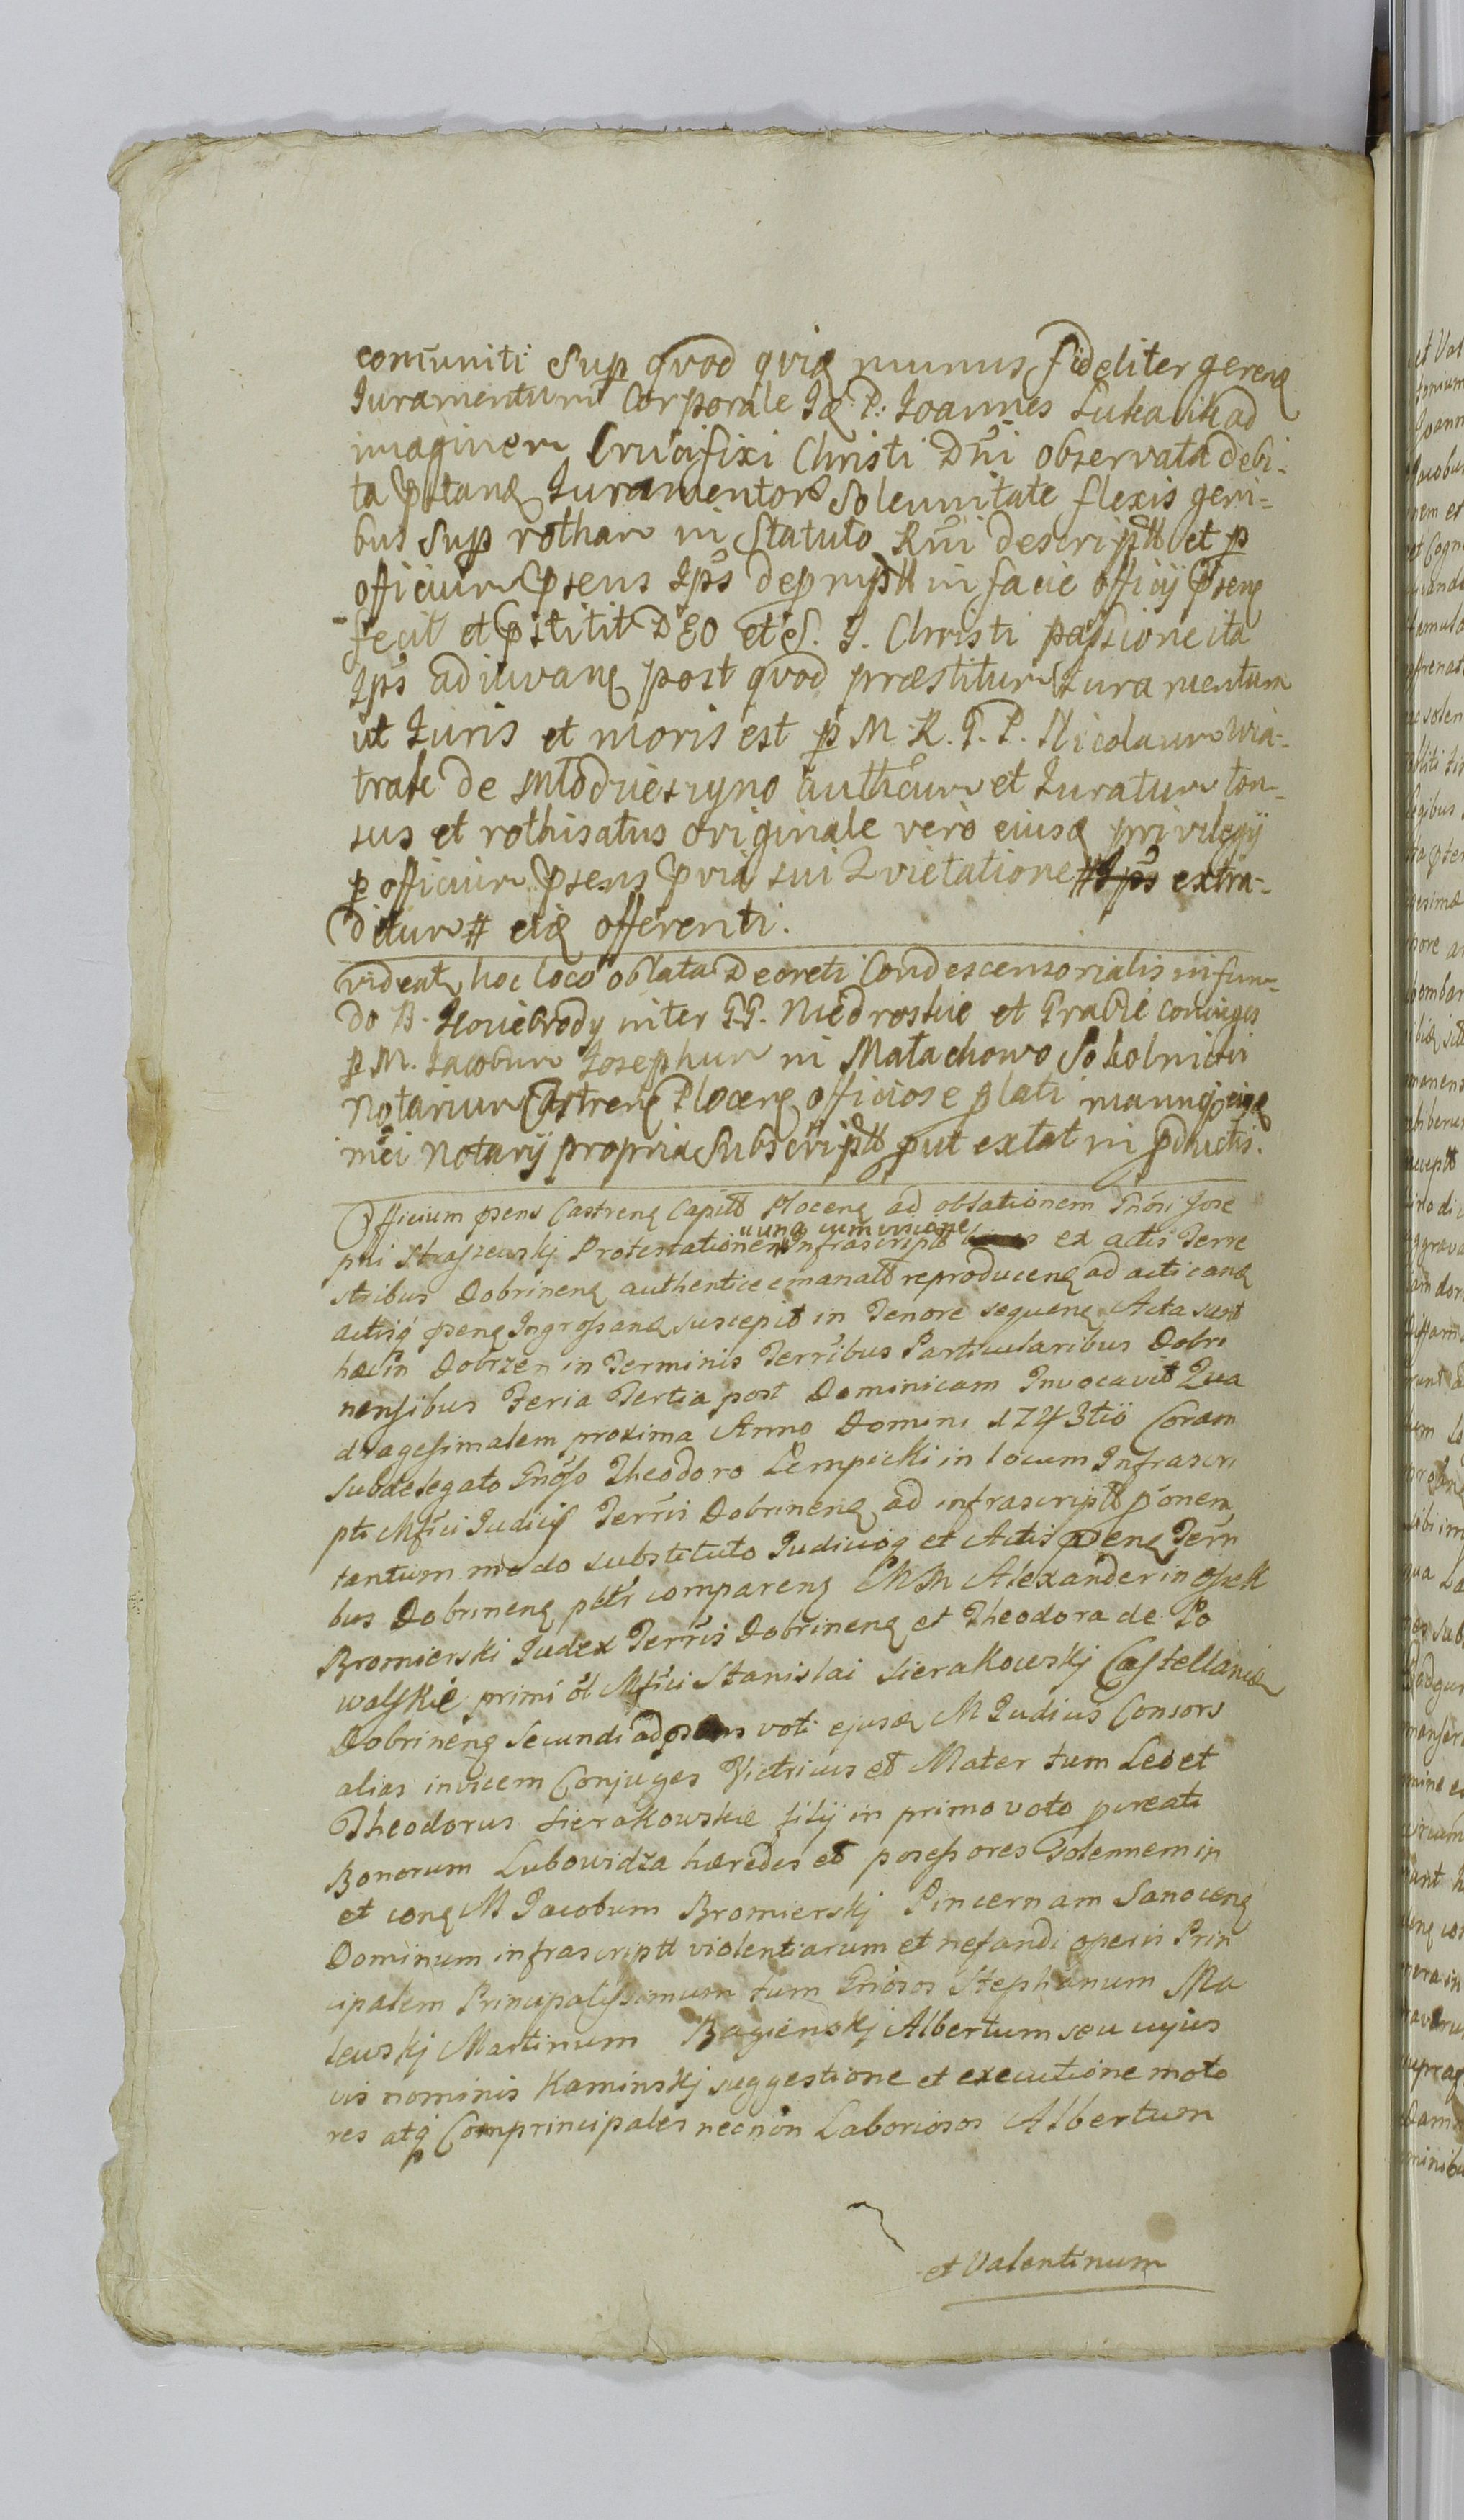 com̃uniti: Sup quod quia munus fideliter gerenđ
Juramentum Corporale Id. P: Joannes Lukasik ad
imaginem Crucifixi Christi Dñi observata debi-
ta pstand Juramentor Solennitate flexis geni-
bus Sup rotham in Statuto Rñi descriptt et p
officium psens Ips deprmptt in facie officij psenꝫ
fecit et pstitit DEO et S. J. Christi passione ita
Ips adiuvanꝫ post quod præstitum Juramentum
ut Juris et moris est p M. R. G. P. Nicolaum Wia-
trak de Młodzieszyno authēum et Juratum ton-
sus et rothisatus originale vero eiusđ privilegij
p officium psens pvia sui Quietatione # Ips extra-
ditum # eid offerenti.
videatr hoc loco oblata Decreti Condescensorialis in fun-
do B. Howiebrody inter GG. Niedroskie et Grabie coniuges
p M. Jacobum Josephum in Małachowo Sokolnicki
Notarium Castrenꝫ Plocenꝫ officiose plati manuqꝫ eiqꝫ
mei Notarij propria Subscriptt put extat in pductis.
Officium psens Castrenꝫ Capitt Plocenꝫ ad oblationem Gñosi Jose
una cum visione
phi Straszewskj Protestationem Infrascriptt ex actis Terre
stribus Dobrinenꝫ authentice emanatt reproducenꝫ ad acticand
actisqꝫ psenꝫ Ingrossand suscepit in Tenore sequenꝫ Acta sunt
hæc in Dobrzen in Terminis Terribus Particularibus Dobri
nensibus Feria Tertia post Dominicam Invocavit Qua
dragesimalem proxima Anno Domini 1743tio Coram
Subdelegato Gñoso Theodoro Lempicki in locum Infrascri
pti Mfici Judicis Terris Dobrinenꝫ ad infrascriptt pñonem
tantum modo substituto Judicioqꝫ et Actis psenꝫ Terri
bus Dobrinenꝫ pltr comparenꝫ MM Alexander in
Bromierski Judex Terris Dobrinenꝫ et Theodora de Po
walskie primi ol Mfici Stanislai Sierakowskj Castellanidæ
Dobrinenꝫ secundi ad psens voti ejusđ M Judicis Consors
alias invicem Conjuges Victricus et Mater tum Leo et
Theodorus Sierakowskie filij in primo voto pcreati
Bonorum Lubowidza hæredes et possessores Solennem in
et conꝫ M Jacobum Bromierskj Pincernam Sanocenꝫ
Dominum infrascriptt violentiarum et nefandi operis Prin
cipalem Principalissimum tum Gñosos Stephanum Ma
lewskj Martinum Bagienskj Albertum seu cujus
vis nominis Kaminskj suggestione et executione moto
res atqꝫ Comprincipales necnon Laboriosos Albertum
et Valentinum